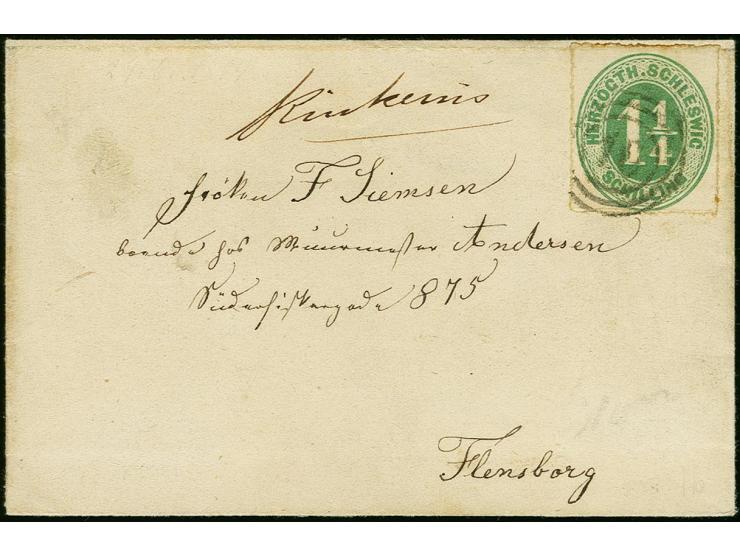 Rinkenis
HERZOGTH. SCHLESWIG
1 1/4
SCHILLING
Fröken F Siemsen
boende hos Muurmester Andersen
Süderfiskergade 875
Flensborg